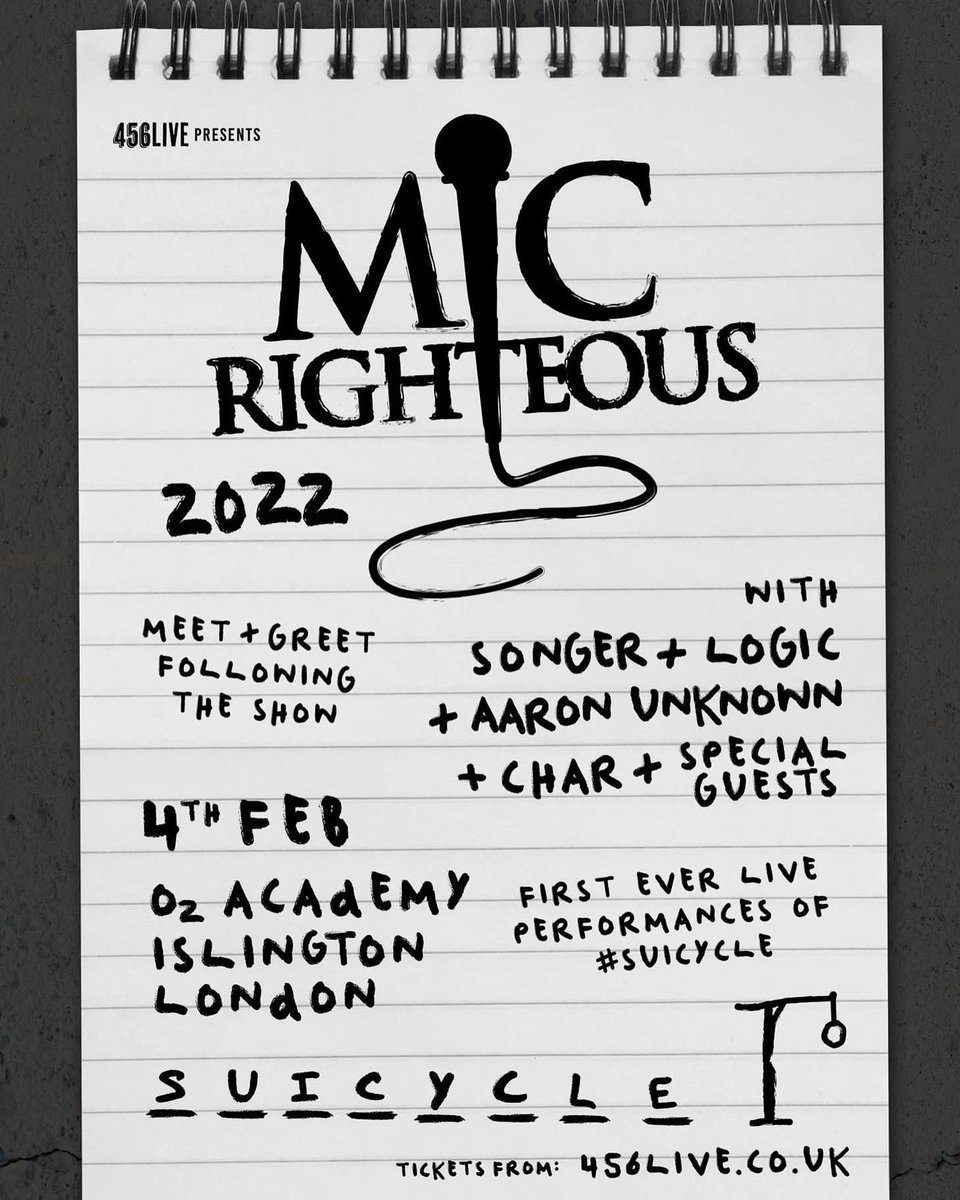 456LIVE PRESENTS
MIC
RIGHTEOUS
2022
MEET + GREET
FOLLOWING
THE SHOW
WITH
SONGER + LOGIC
+ AARON UNKNOWN
+ CHAR + SPECIAL
GUESTS
4TH FEB
O2 ACAdEMY
ISLINGTON
LONdON
FIRST EVER LIVE
PERFORMANCES OF
#SUICYCLE
S U I C Y C L E
TICKETS FROM: 456LIVE.CO.UK